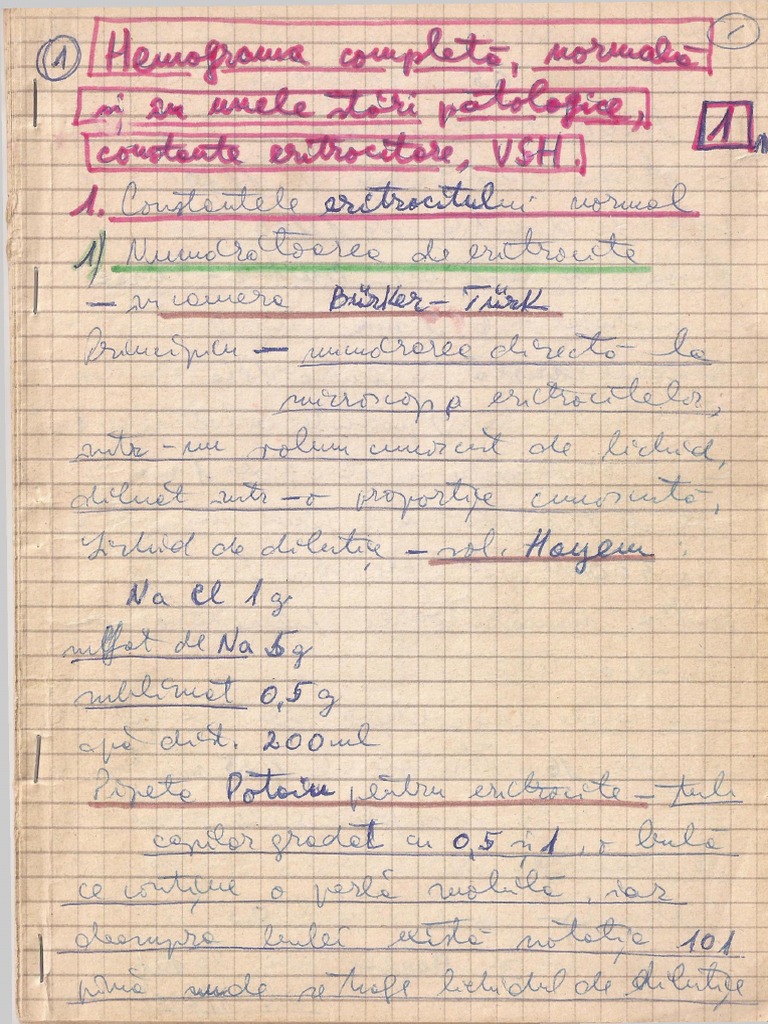 1 Hemograma completă, normală
și în unele stări patologice,
1
constante eritrocitare, VSH.
1. Constantele eritrocitului normal
1) Numărătoarea de eritrocite
– în camera Bürker – Türk
Principiu – numărarea directă la
microscop a eritrocitelor,
într-un volum cunoscut de lichid,
diluat într-o proporție cunoscută,
Lichid de diluție – sol. Hayem :
Na Cl 1 g
sulfat de Na 5 g
sublimat 0,5 g
apă dist. 200 ml
Pipeta Potain pentru eritrocite – tub
capilar gradat cu 0,5 și 1, o bulă
ce conține o perlă mobilă, iar
deasupra bulei există notația 101
până unde se trage lichidul de diluție